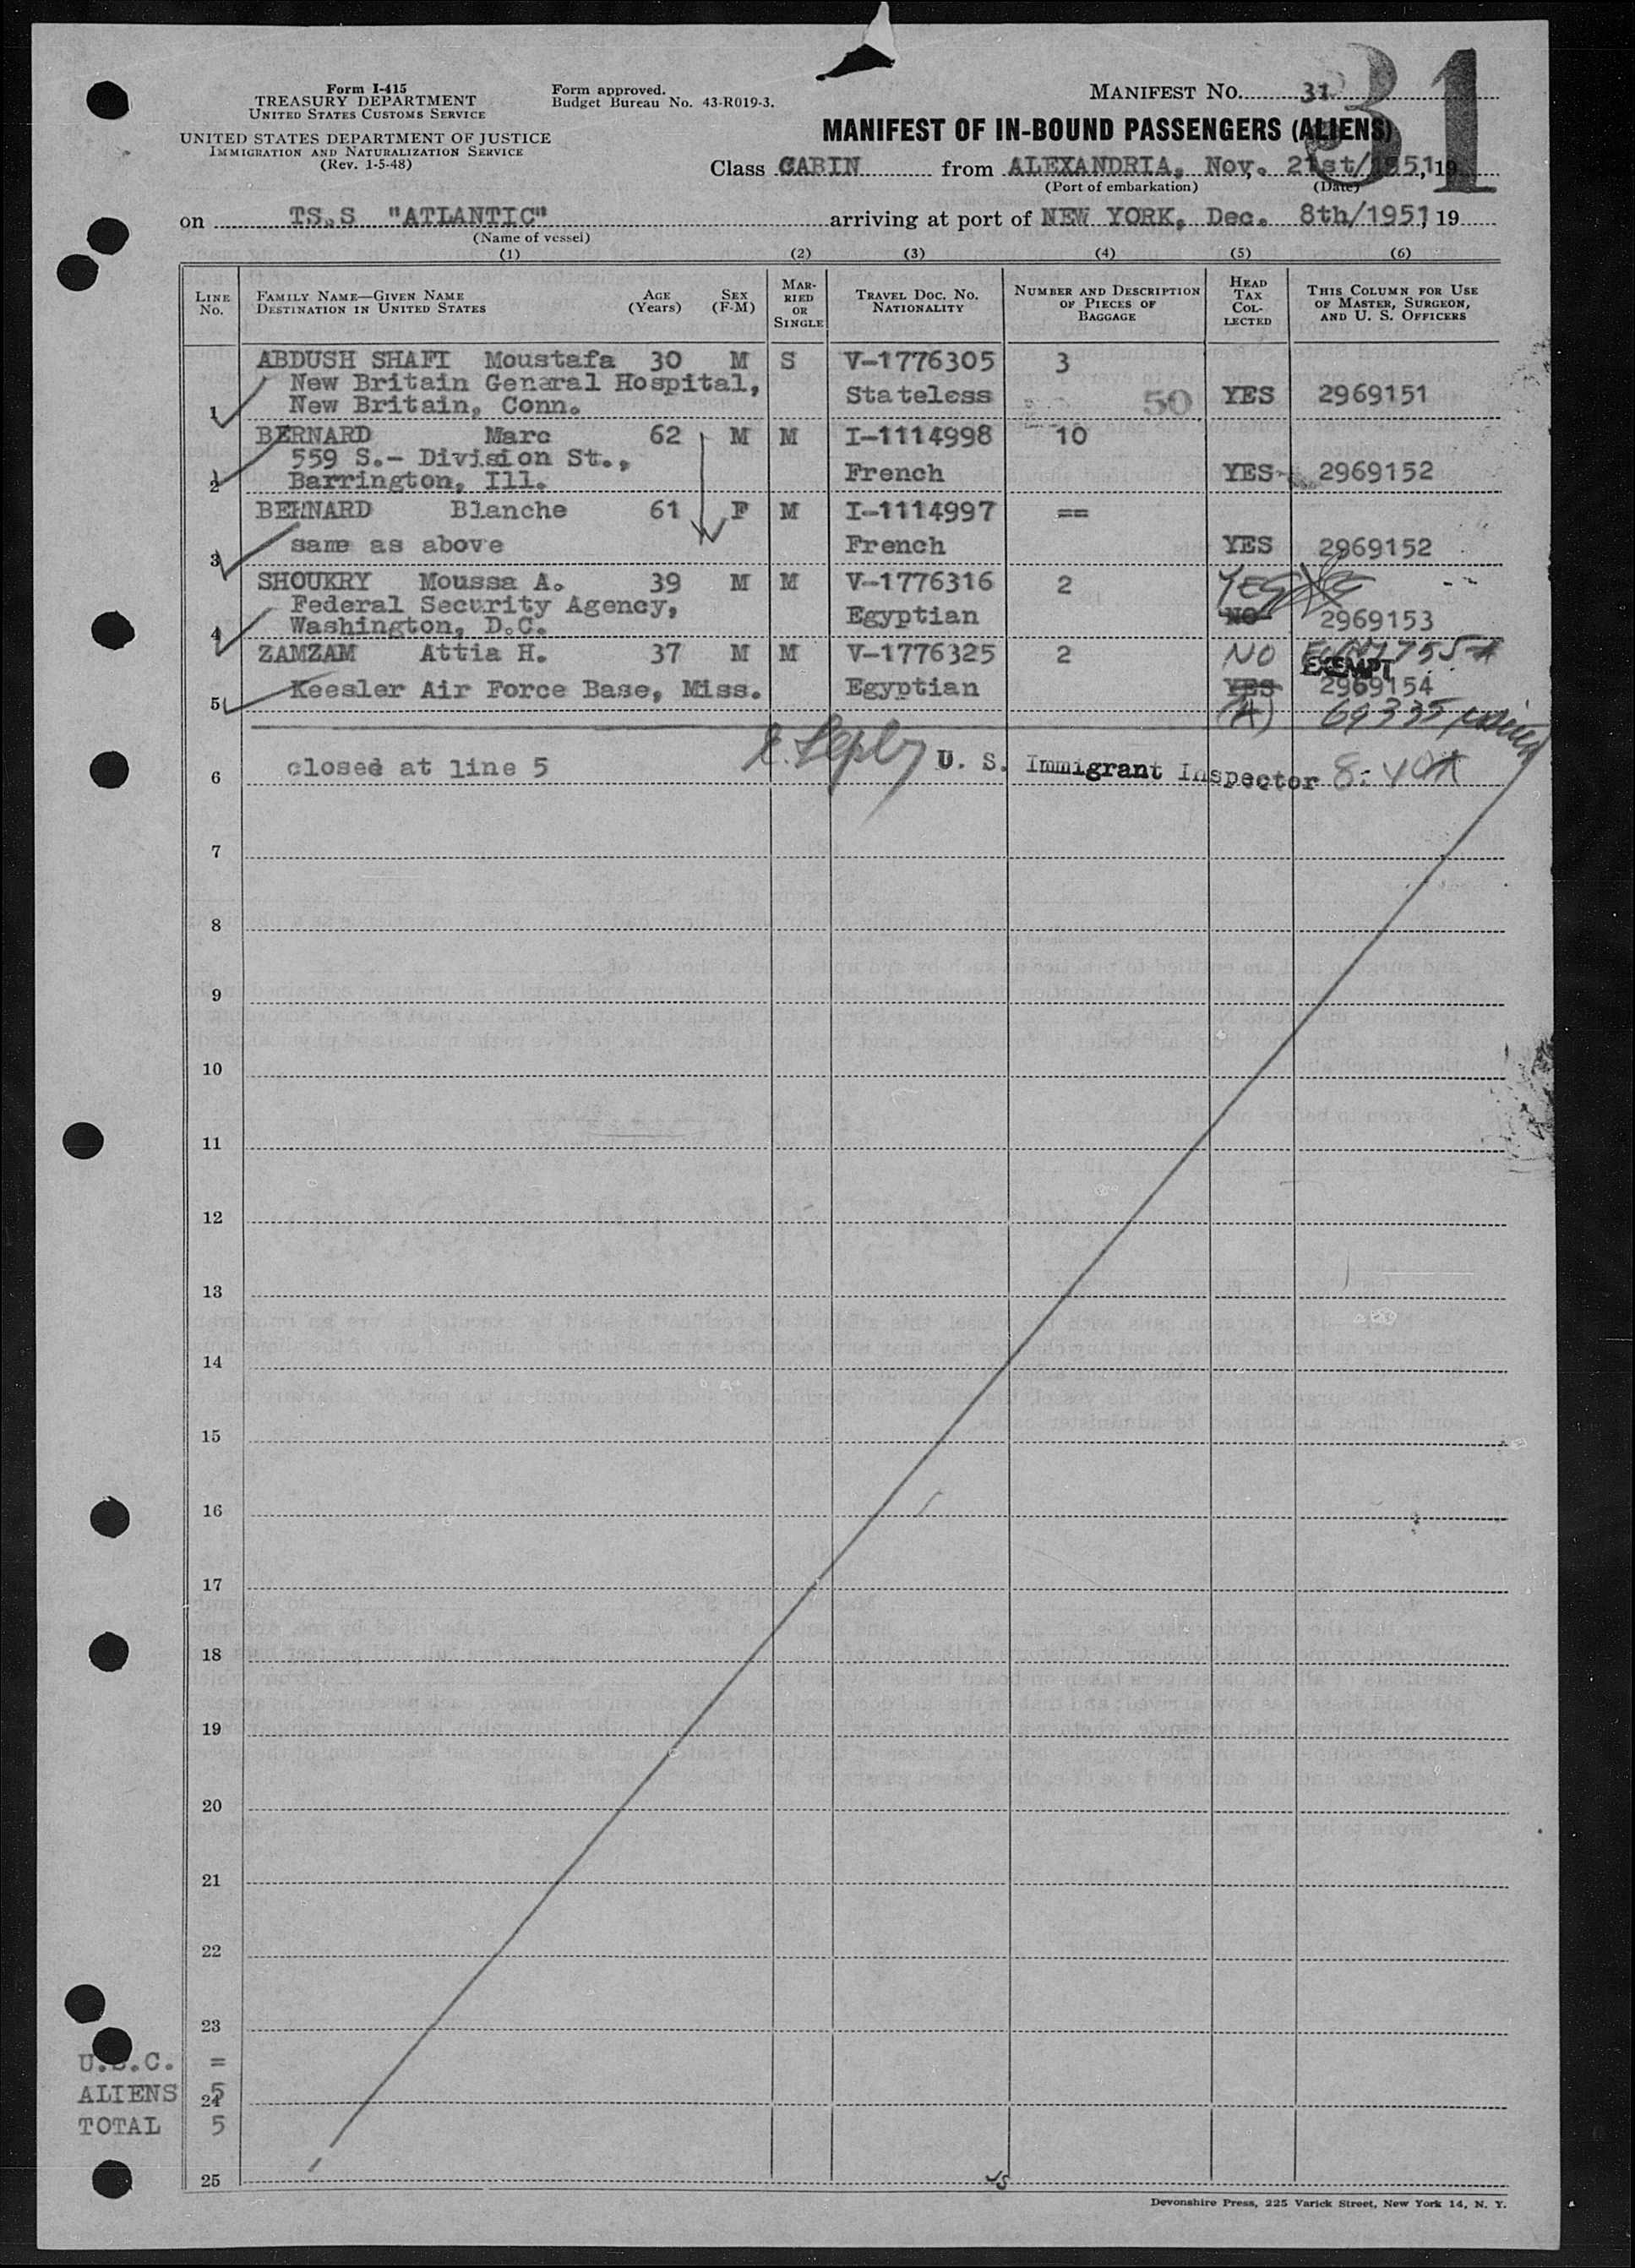 31
Form I-415
TREASURY DEPARTMENT
UNITED STATES CUSTOMS SERVICE
UNITED STATES DEPARTMENT OF JUSTICE
IMMIGRATION AND NATURALIZATION SERVICE
(Rev. 1-5-48)
Form approved.
Budget Bureau No. 43-R019-3.
MANIFEST NO. 31
MANIFEST OF IN-BOUND PASSENGERS (ALIENS)
Class CABIN from ALEXANDRIA, Nov. 21st/1951, 19
(Port of embarkation) (Date)
on TS.S "ATLANTIC" arriving at port of NEW YORK, Dec. 8th/1951, 19
(Name of vessel)
(1) (2) (3) (4) (5) (6)
LINE NO. FAMILY NAME—GIVEN NAME DESTINATION IN UNITED STATES AGE (Years) SEX (F-M) MARRIED OR SINGLE TRAVEL DOC. NO. NATIONALITY NUMBER AND DESCRIPTION OF PIECES OF BAGGAGE HEAD TAX COLLECTED THIS COLUMN FOR USE OF MASTER, SURGEON, AND U. S. OFFICERS
ABDUSH SHAFI Moustafa 30 M S V-1776305 3
New Britain General Hospital,
1 New Britain, Conn. Stateless 50 YES 2969151
BERNARD Marc 62 M M I-1114998 10
559 S.- Division St.,
2 Barrington, Ill. French YES 2969152
BERNARD Blanche 61 F M I-1114997 ==
3 same as above French YES 2969152
SHOUKRY Moussa A. 39 M M V-1776316 2 YES
Federal Security Agency,
4 Washington, D.C. Egyptian NO 2969153
ZAMZAM Attia H. 37 M M V-1776325 2 NO
EXEMPT
5 Keesler Air Force Base, Miss. Egyptian YES 2969154
(A) 69335
6 closed at line 5 U. S. Immigrant Inspector 8:40A
7
8
9
10
11
12
13
14
15
16
17
18
19
20
21
22
23
U.S.C. =
ALIENS 5
24
TOTAL 5
25
Devonshire Press, 225 Varick Street, New York 14, N. Y.